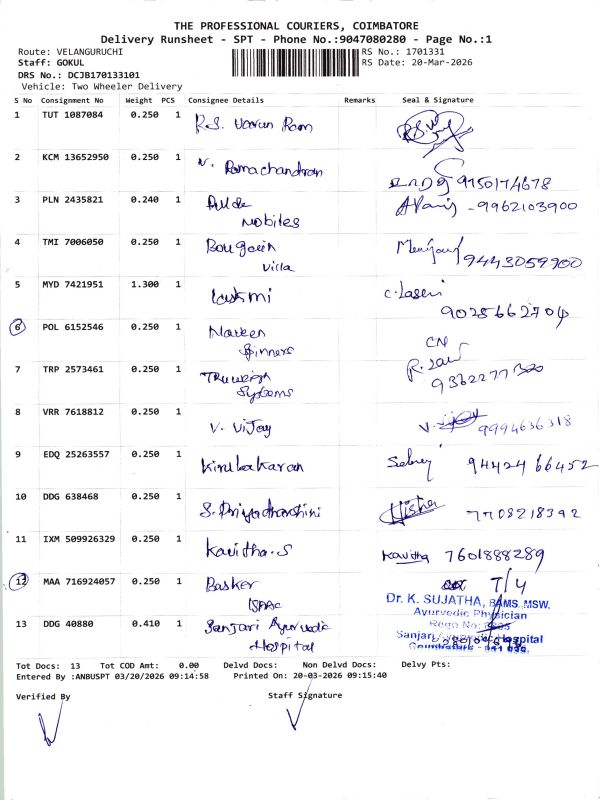 THE PROFESSIONAL COURIERS, COIMBATORE
Delivery Runsheet - SPT - Phone No.:9047080280 - Page No.:1
Route: VELANGURUCHI RS No.: 1701331
Staff: GOKUL RS Date: 20-Mar-2026
DRS No.: DCJB170133101
Vehicle: Two Wheeler Delivery
S No Consignment No Weight PCS Consignee Details Remarks Seal & Signature
1 TUT 1087084 0.250 1 R.S. Varun Ram
2 KCM 13652950 0.250 1 V. Ramachandran 9750174678
3 PLN 2435821 0.240 1 Mobiles 9962103900
4 TMI 7006050 0.250 1 Bougain Villa 9443059900
5 MYD 7421951 1.300 1 Laxmi 9025662704
6 POL 6152546 0.250 1 Naveen Spinners CN
7 TRP 2573461 0.250 1 Truweigh Systems 9362277320
8 VRR 7618812 0.250 1 V. Vijay 9994636318
9 EDQ 25263557 0.250 1 Kirubakaran 9442466452
10 DDG 638468 0.250 1 S. Priyadharshini Nisha 7708218392
11 IXM 509926329 0.250 1 Kavitha.S Kavitha 7601888289
12 MAA 716924057 0.250 1 Basker T/4
13 DDG 40880 0.410 1 Sanjari Ayurvedic Hospital
Dr. K. SUJATHA, BAMS, MSW.
Ayurvedic Physician
Regn No:
Sanjari Ayurvedic Hospital
Tot Docs: 13 Tot COD Amt: 0.00 Delvd Docs: Non Delvd Docs: Delvy Pts:
Entered By :ANBUSPT 03/20/2026 09:14:58 Printed On: 20-03-2026 09:15:40
Verified By Staff Signature